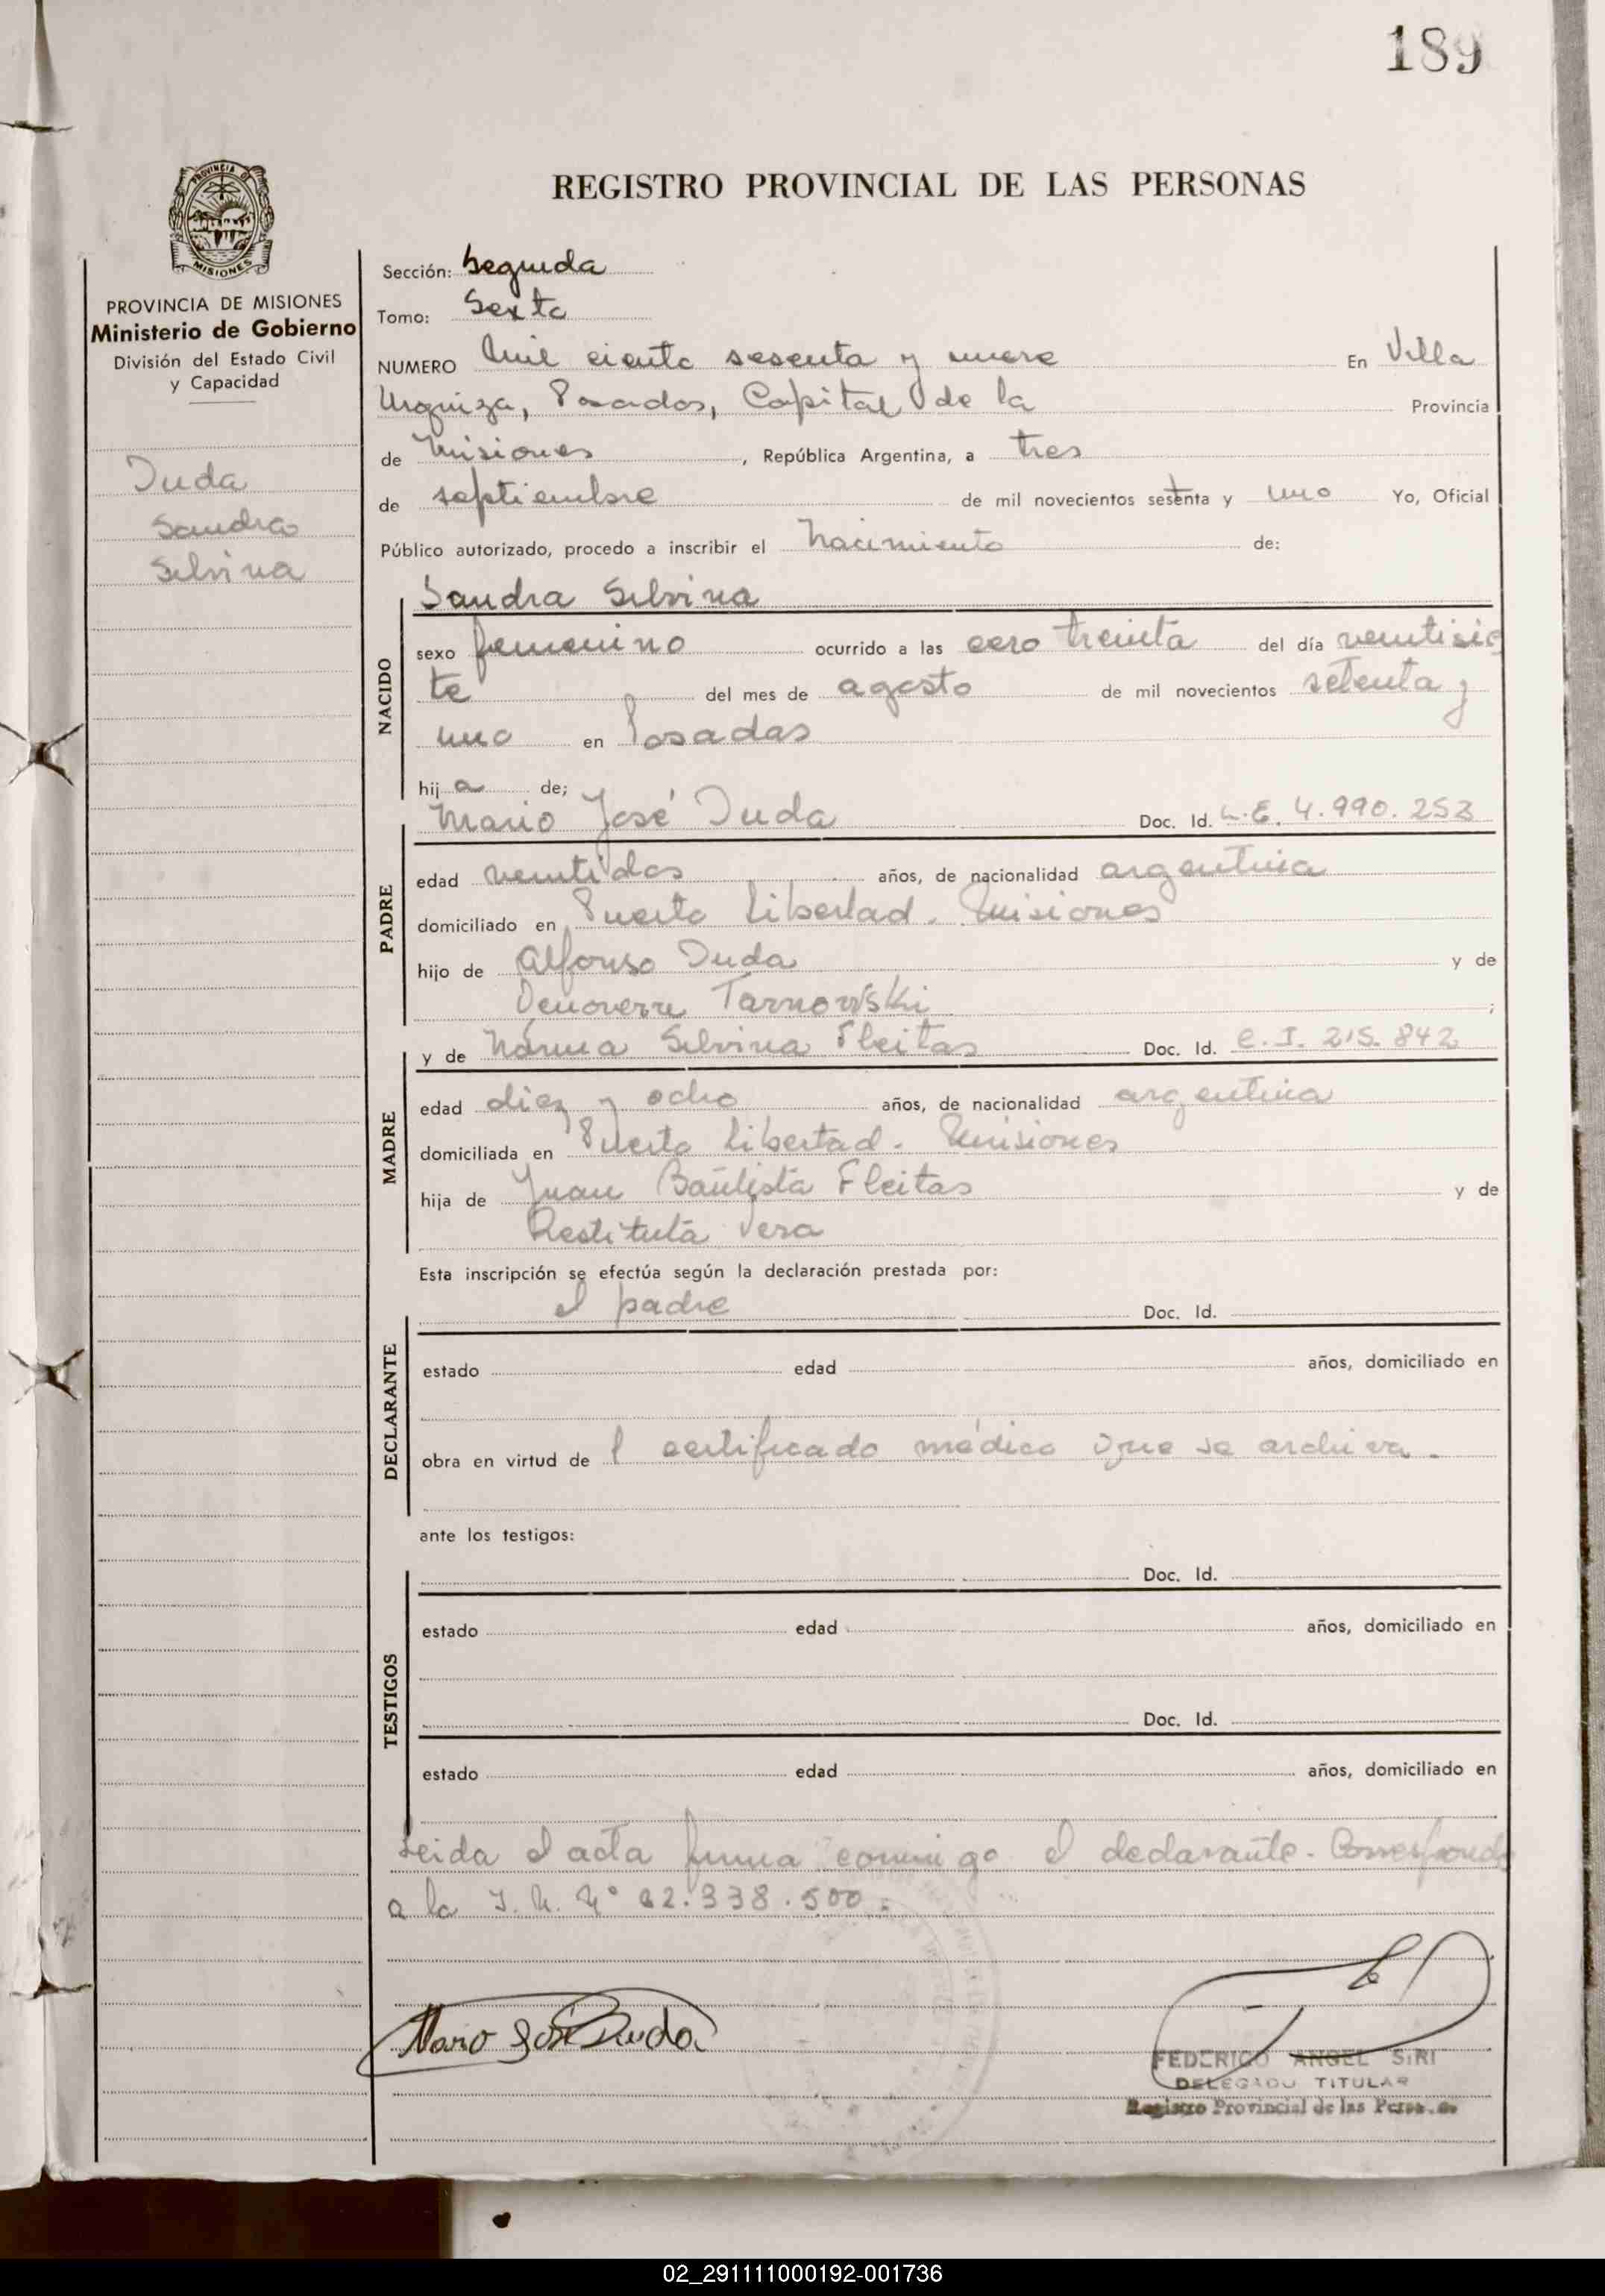 189
REGISTRO PROVINCIAL DE LAS PERSONAS
PROVINCIA DE
MISIONES
PROVINCIA DE MISIONES
Ministerio de Gobierno
División del Estado Civil
y Capacidad
Duda
Sandra
Silvina
Sección: Segunda
Tomo: Sexto
NUMERO Mil ciento sesenta y nueve En Villa
Urquiza, Posadas, Capital de la Provincia
de Misiones, República Argentina, a tres
de septiembre de mil novecientos setenta y uno Yo, Oficial
Público autorizado, procedo a inscribir el Nacimiento de:
Sandra Silvina
NACIDO
sexo femenino ocurrido a las cero treinta del día veintisie
te del mes de agosto de mil novecientos setenta y
uno en Posadas
hija de;
Mario José Duda Doc. Id. L.E. 4.990.253
PADRE
edad veintidos años, de nacionalidad argentina
domiciliado en Puerto Libertad. Misiones
hijo de Alfonso Duda y de
Tarnowski ;
y de Norma Silvina Fleitas Doc. Id. C.I. 215.842
MADRE
edad diez y ocho años, de nacionalidad argentina
domiciliada en Puerto Libertad. Misiones
hija de Juan Bautista Fleitas y de
Restituta Vera
Esta inscripción se efectúa según la declaración prestada por:
el padre Doc. Id.
DECLARANTE
estado edad años, domiciliado en
obra en virtud de l certificado médico que se archiva.
ante los testigos:
Doc. Id.
TESTIGOS
estado edad años, domiciliado en
Doc. Id.
estado edad años, domiciliado en
Leida el acta firma conmigo el declarante. Corresponde
a la I.N. Nº 22.338.500.
Mario José Duda
FEDERICO ANGEL SIRI
DELEGADO TITULAR
Registro Provincial de las Personas
02_291111000192-001736